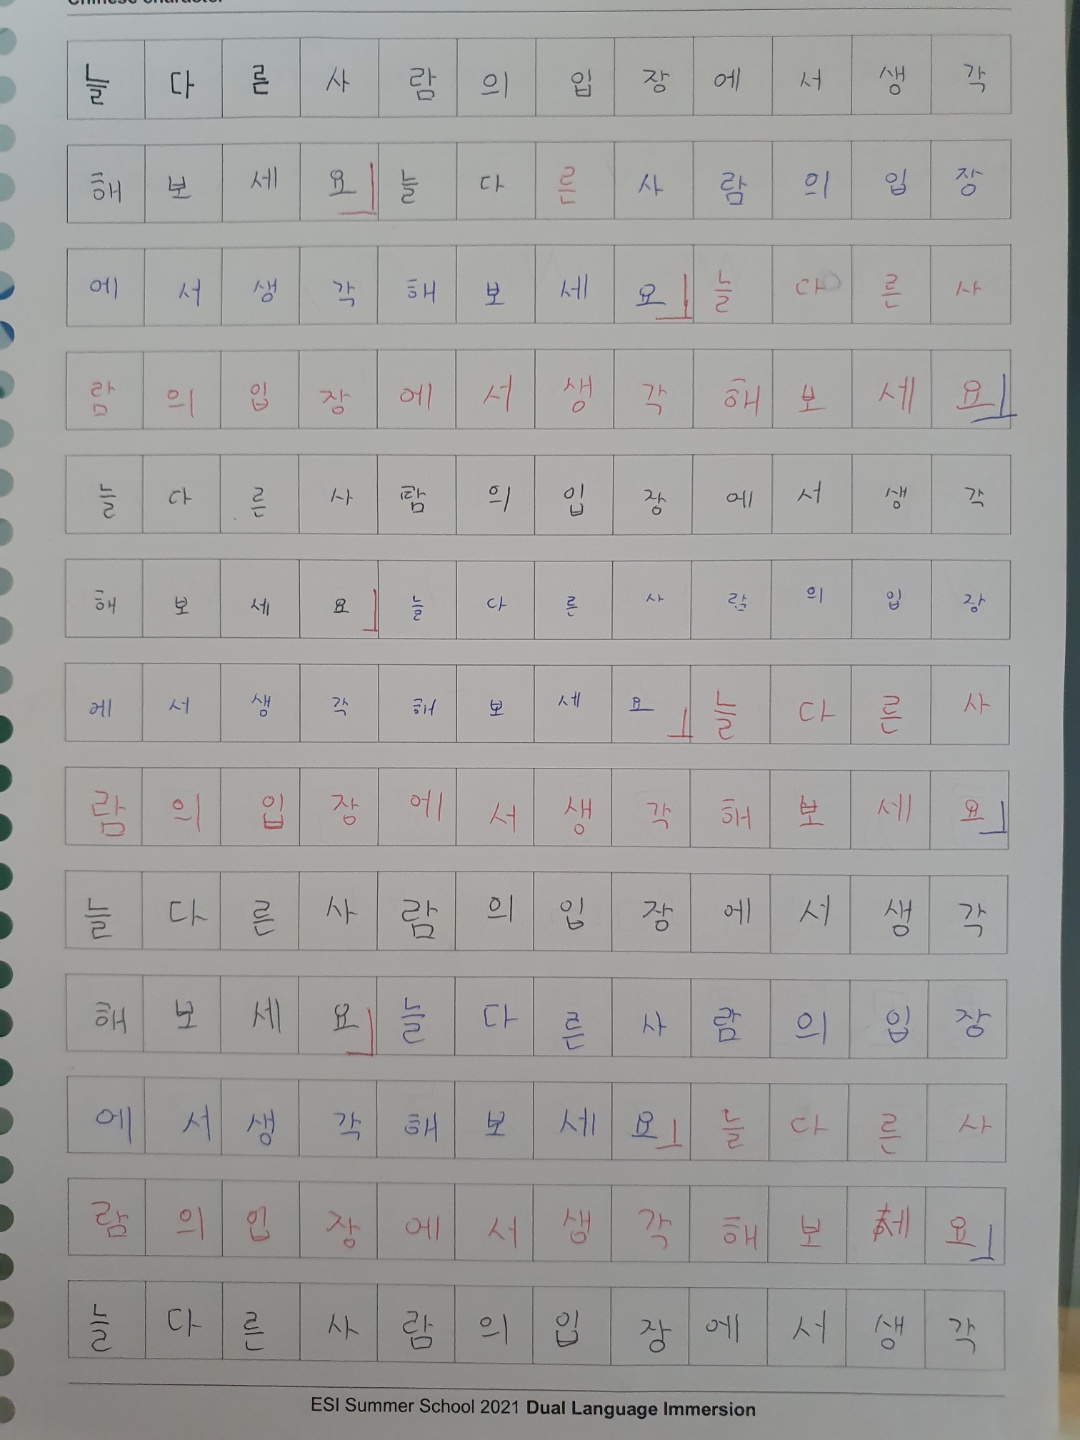 늘다른사람의입장에서생각
해보세요늘다른사람의입장
에서생각해보세요늘다른사
람의입장에서생각해보세요
늘다른사람의입장에서생각
해보세요늘다른사람의입장
에서생각해보세요늘다른사
람의입장에서생각해보세요
늘다른사람의입장에서생각
해보세요늘다른사람의입장
에서생각해보세요늘다른사
람의입장에서생각해보세요
늘다른사람의입장에서생각
ESI Summer School 2021 Dual Language Immersion